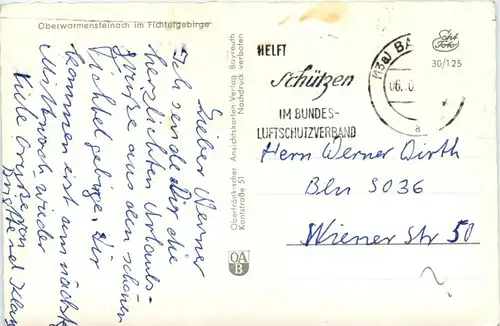 Oberwarmensteinach im Fichtelgebirge
Lieber Werner
Ich sende Dir die
herzlichsten Urlaubs-
grüße aus dem schönen
Fichtelgebirge. Wir
kommen erst am nächsten
Mittwoch wieder
Viele Grüße von
Brigitte und Klaus
Oberfränkischer Ansichtskarten-Verlag Bayreuth
Kantstraße 51
Nachdruck verboten
OA
B
HELFT
Schützen
IM BUNDES-
LUFTSCHUTZVERBAND
(13a) BA
06.
a
Echt
Foto
30/125
Herrn Werner Wirth
Bln SO36
Wiener Str 50